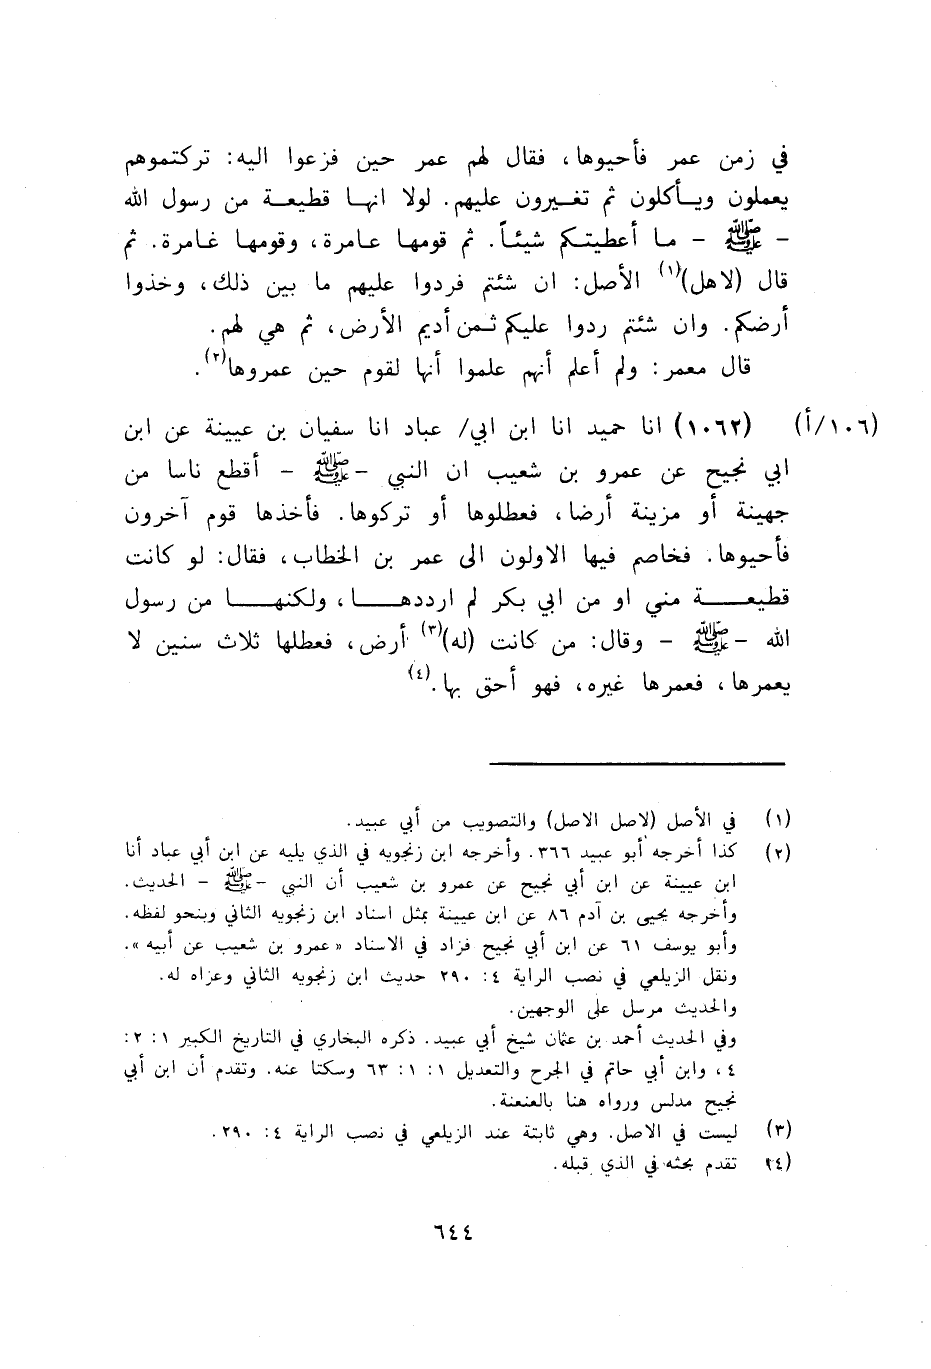 في زمن عمر فأحيوها، فقال لهم عمر حين فزعوا اليه: تركتموهم
يعملون ويأكلون ثم تغيرون عليهم. لولا انها قطيعة من رسول الله
- ﷺ - ما أعطيتكم شيئاً. ثم قومها عامرة، وقومها غامرة. ثم
قال (لاهل)(١) الأصل: ان شئتم فردوا عليهم ما بين ذلك، وخذوا
أرضكم. وان شئتم ردوا عليكم ثمن أديم الأرض، ثم هي لهم.
قال معمر: ولم أعلم أنهم علموا أنها لقوم حين عمروها(٢).
(١٠٦/أ) (١٠٦٢) انا حميد انا ابن ابي/ عباد انا سفيان بن عيينة عن ابن
ابي نجيح عن عمرو بن شعيب ان النبي -ﷺ - أقطع ناسا من
جهينة أو مزينة أرضا، فعطلوها أو تركوها. فأخذها قوم آخرون
فأحيوها. فخاصم فيها الاولون الى عمر بن الخطاب، فقال: لو كانت
قطيعة مني او من ابي بكر لم ارددها، ولكنها من رسول
الله -ﷺ - وقال: من كانت (له)(٣) أرض، فعطلها ثلاث سنين لا
يعمرها، فعمرها غيره، فهو أحق بها.(٤)
(١) في الأصل (لاصل الاصل) والتصويب من أبي عبيد.
(٢) كذا أخرجه أبو عبيد ٣٦٦. وأخرجه ابن زنجويه في الذي يليه عن ابن أبي عباد أنا
ابن عيينة عن ابن أبي نجيح عن عمرو بن شعيب أن النبي -ﷺ - الحديث.
وأخرجه يحيى بن آدم ٨٦ عن ابن عيينة بمثل اسناد ابن زنجويه الثاني وبنحو لفظه.
وأبو يوسف ٦١ عن ابن أبي نجيح فزاد في الاسناد «عمرو بن شعيب عن أبيه».
ونقل الزيلعي في نصب الراية ٤: ٢٩٠ حديث ابن زنجويه الثاني وعزاه له.
والحديث مرسل على الوجهين.
وفي الحديث أحمد بن عثمان شيخ أبي عبيد. ذكره البخاري في التاريخ الكبير ١: ٢:
٤، وابن أبي حاتم في الجرح والتعديل ١: ١: ٦٣ وسكتا عنه. وتقدم أن ابن أبي
نجيح مدلس ورواه هنا بالعنعنة.
(٣) ليست في الاصل. وهي ثابتة عند الزيلعي في نصب الراية ٤: ٢٩٠.
(٤) تقدم بحثه في الذي قبله.
٦٤٤